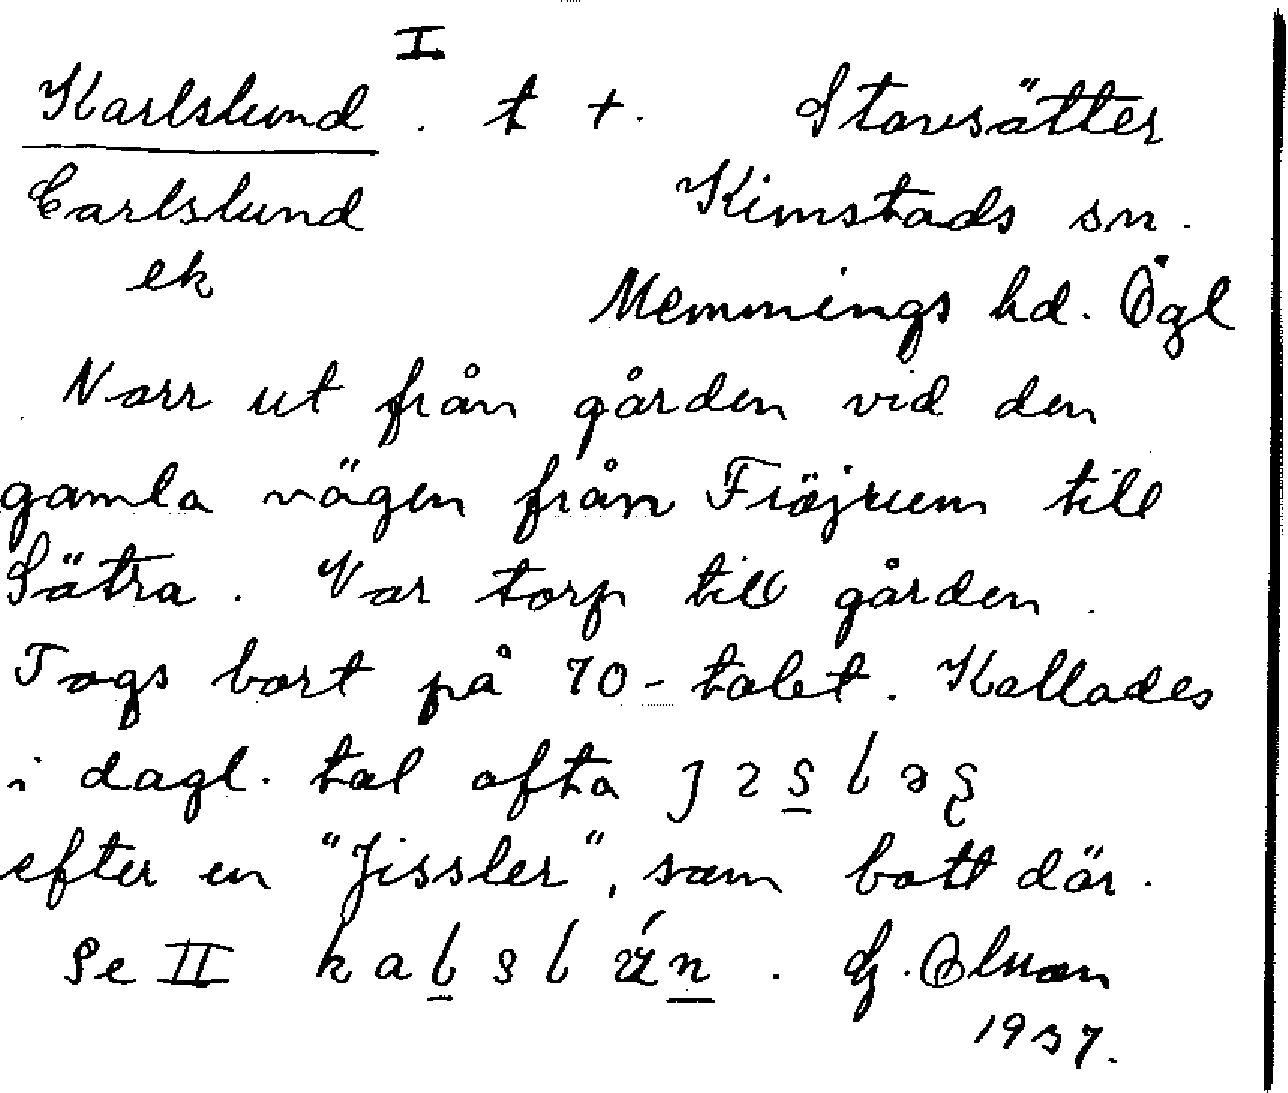 I
Karlslund. t +. Stavsätter
Carlslund Kimstads sn.
ek
Memmings hd. Ögl
Norr ut från gården vid den
gamla vägen från Fröjrum till
Sätra. Var torp till gården.
Togs bort på 70-talet. Kallades
i dagl. tal ofta
efter en "Jissler", som bott där.
Se II G.
1937.